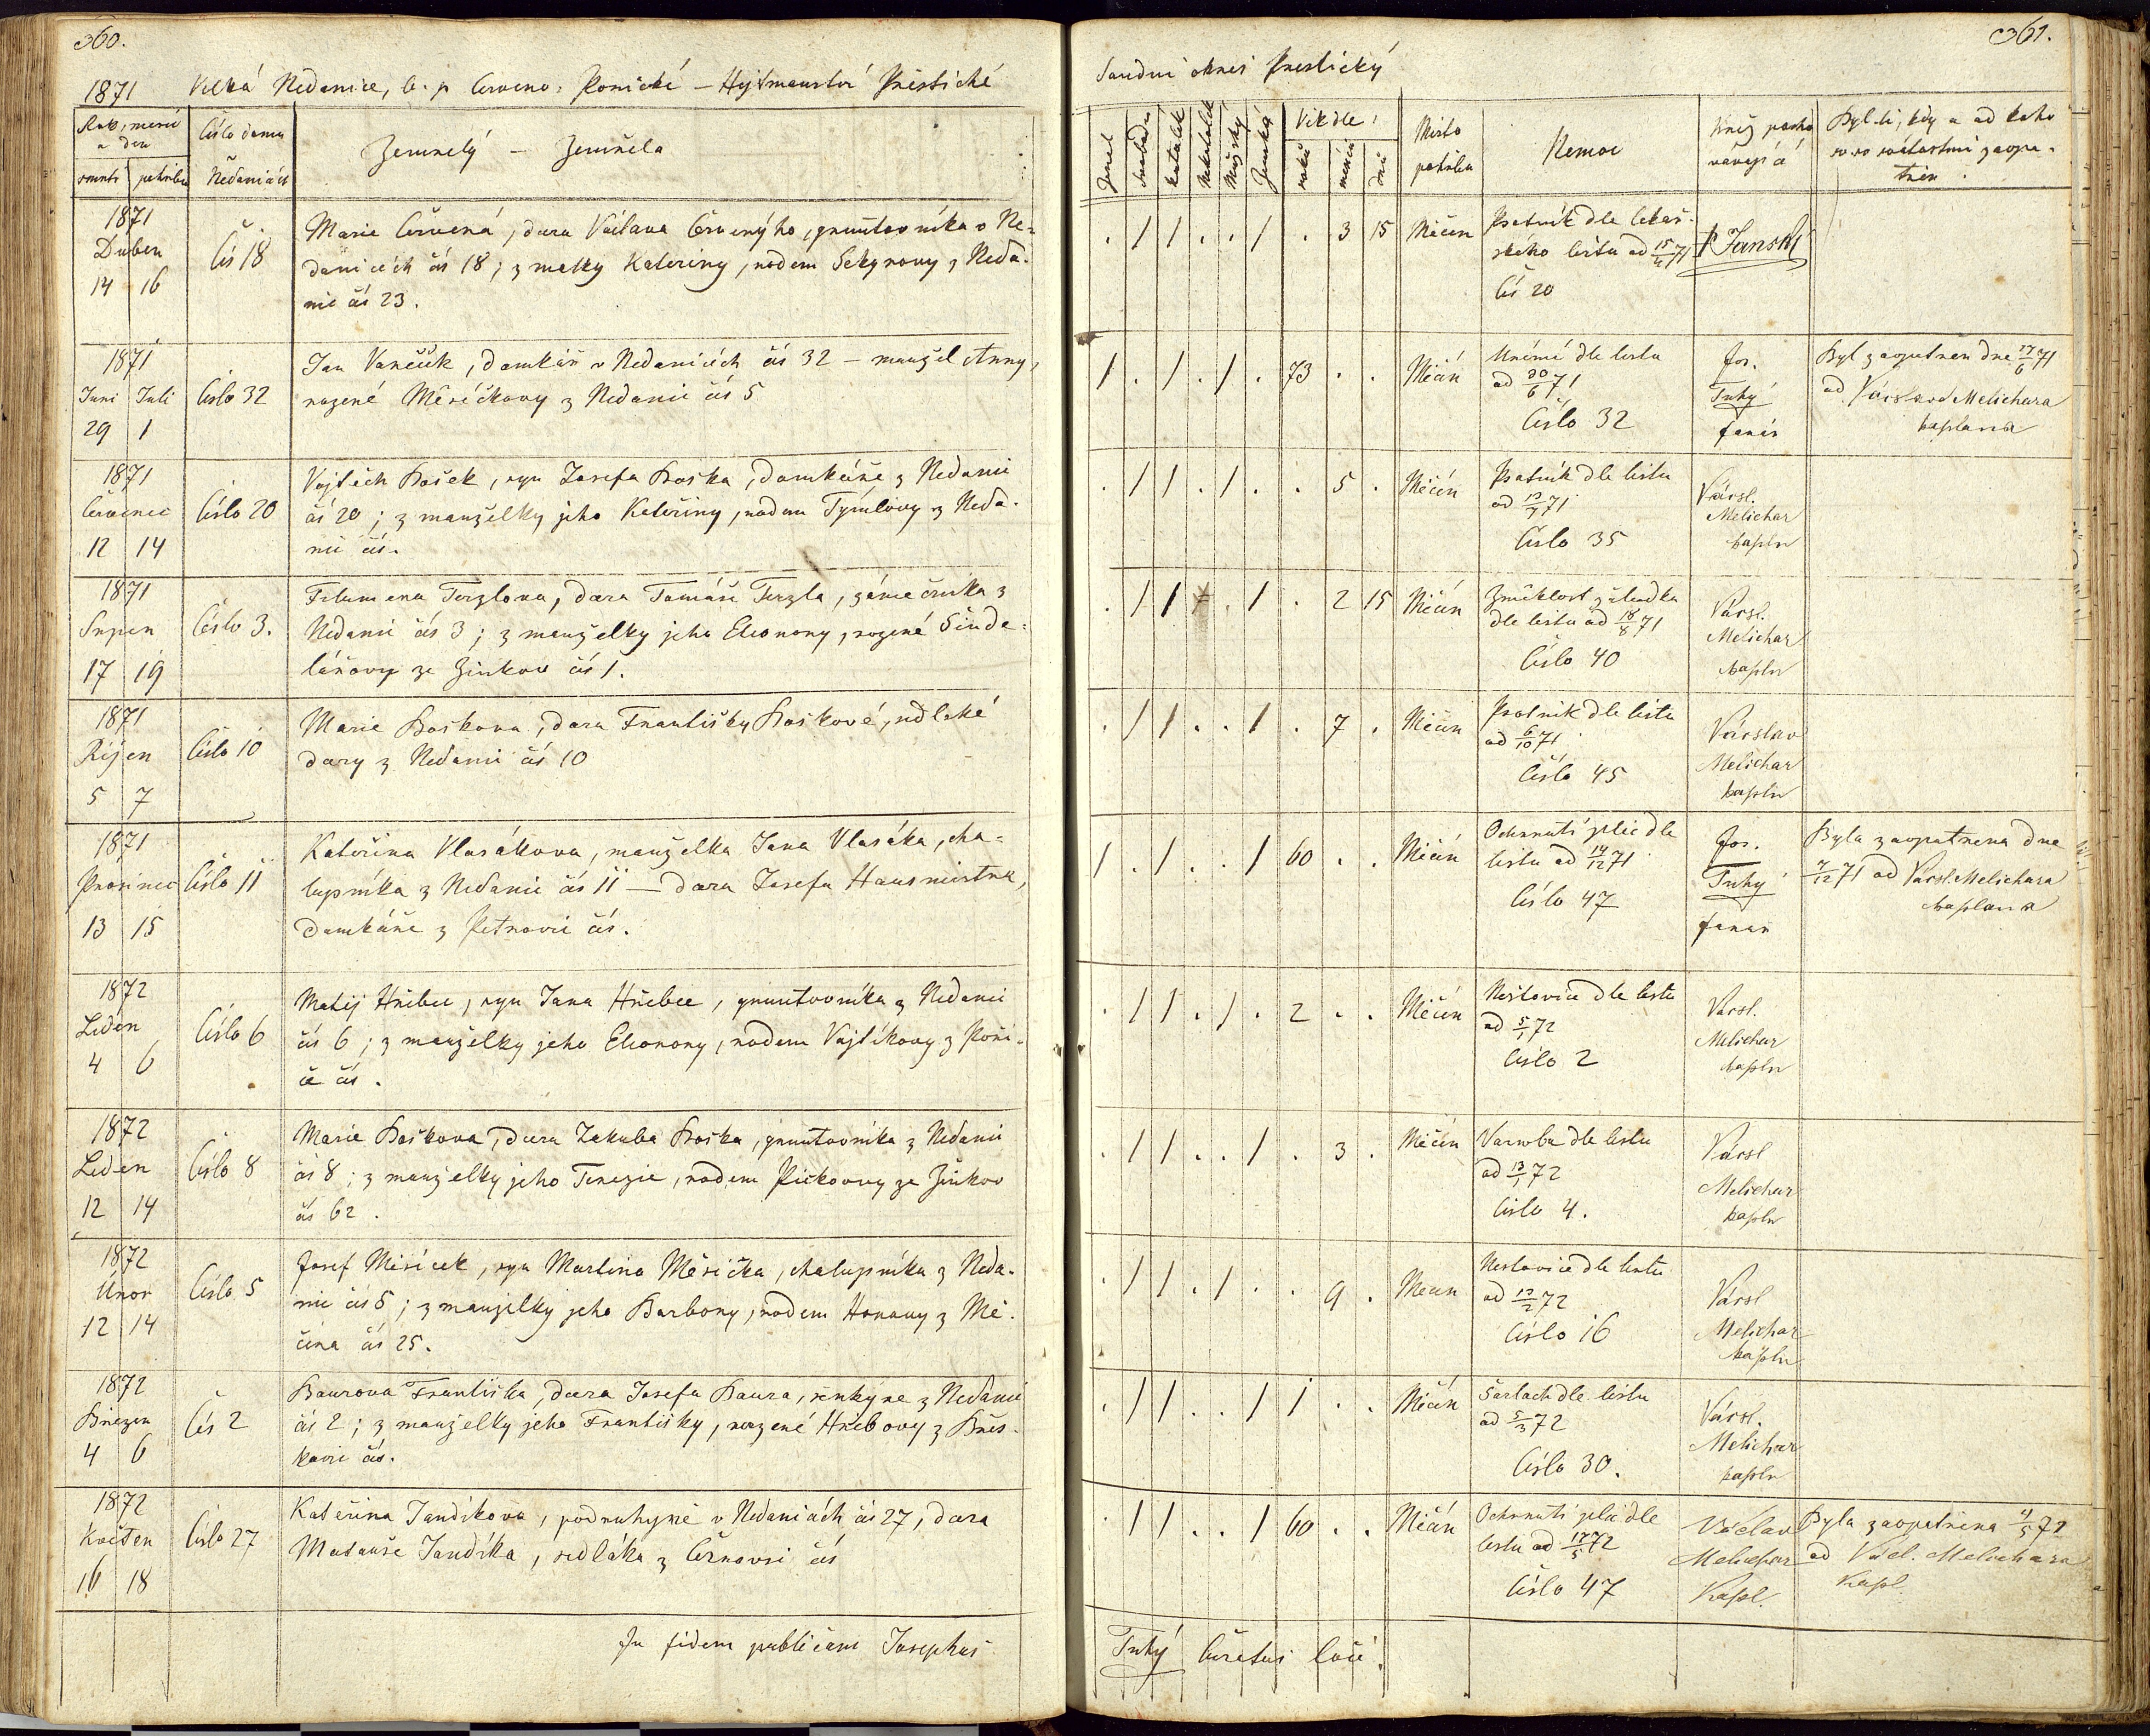 360.
1871 Velká Nedanice, č. p Červeno. Poříčské – Hejtmanství Přeštické
Rok, měsíc a den
Číslo domu
Zemřelý – Zemřela
smrti pohřbu
Nedanicích
1871
Duben
14 16
Čís 18
Marie Červená, dcera Václava Červenýho, gruntovníka v Ne-
danicích čís 18; z matky Kateřiny, rodem Sekyrovy z Neda-
nic čís 23.
1871
Juni Juli
29 1
Číslo 32
Jan Vaneček, domkář v Nedanicích čís 32 – manžel Anny,
rozené Měsíčkovy z Nedanic čís 5
1871
Červenec
12 14
Číslo 20
Vojtěch Bošek, syn Josefa Boška, domkáře z Nedanic
čís 20; z manželky jeho Kateřiny, rodem Týmlovy z Neda-
nic čís.
1871
Srpen
17 19
Číslo 3.
Filumena Terzlova, dcera Tomáše Terzla, zámečníka z
Nedanic čís 3; z manželky jeho Eleonory, rozené Šinde-
lářovy ze Žinkov čís 1.
1871
Říjen
5 7
Číslo 10
Marie Boškova, dcera Františky Boškové, sedlské
dcery z Nedanic čís 10
1871
Prosinec
13 15
Číslo 11
Kateřina Vlasákova, manželka Jana Vlasáka, cha-
lupníka z Nedanic čís 11 – dcera Josefa Hausmistra,
domkáře z Petrovic čís.
1872
Leden
4 6
Číslo 6
Matěj Hřibec, syn Jana Hřebce, gruntovníka z Nedanic
čís 6; z manželky jeho Eleonory, rodem Vojtíkovy z Poří-
čí čís.
1872
Leden
12 14
Číslo 8
Marie Boškova, dcera Jakuba Boška, gruntovníka z Nedanic
čís 8; z manželky jeho Terezie, rodem Pickovy ze Žinkov
čís 62.
1872
Únor
12 14
Číslo 5
Josef Měsíček, syn Martina Měsíčka, chalupníka z Neda-
nic čís 5; z manželky jeho Barbory, rodem Honovy z Mě-
čína čís 25.
1872
Březen
4 6
Čís 2
Baurova Františka, dcera Josefa Baura, z Nedanic
čís 2; z manželky jeho Františky, rozené Hřebovy z Břes-
kovic čís.
1872
Květen
16 18
Číslo 27
Kateřina Jandíkova, podruhyně v Nedanicích čís 27, dcera
Matouše Jandíka, sedláka z Črnovsi čís
In fidem publicam Josephus
361.
Soudní okres Přeštický
Ženat
Svobodn
Katolík
Nekatolík
Mužský
Ženská
Věk dle:
roků
měsíců
dnů
Místo pohřbu
Nemoc
Kněz pocho-
vávající
Byl-li, kdy a od koho
sv. svátostmi zaopa-
třen.
. / / . . / . 3 15 Měčín
Psotník dle lékař-
ského listu od 15/4 71
Čís 20
P Janský
/ . / . / . 73 . . Měčín
Unémí dle listu
od 30/6 71
Číslo 32
Jos.
Tuhý
farář
Byl zaopatřen dne 17/6 71
od Václava Melichara
kaplana
. / / . / . . 5 . Měčín
Psotník dle listu
od 13/7 71
Číslo 35
Václ.
Melichar
kapln
. / / . . / . 2 15 Měčín
Změklost žaludka
dle listu od 18/8 71
Číslo 40
Václ.
Melichar
kapln
. / / . . / . 7 . Měčín
Psotník dle listu
od 6/10 71
Číslo 45
Václav
Melichar
kapln
/ . / . . / 60 . . Měčín
Ochrnutí plic dle
listu od 14/12 71
Číslo 47
Jos.
Tuhý
farář
Byla zaopatřena dne
7/12 71 od Václ. Melichara
kaplana
. / / . / . 2 . . Měčín
Neštovice dle listu
od 5/1 72
Číslo 2
Václ.
Melichar
kapln
. / / . . / . 3 . Měčín
dle listu
od 13/1 72
Číslo 4.
Václ
Melichar
kapln
. / / . / . . 9 . Měčín
Neštovice dle listu
od 13/2 72
Číslo 16
Václ
Melichar
kapln
. / / . . / 1 . . Měčín
Šarlach dle listu
od 5/3 72
Číslo 30.
Václ.
Melichar
kapln
. / / . . / 60 . . Měčín
Ochrnutí plic dle
listu od 17/5 72
Číslo 47
Václav
Melichar
Kapl.
Byla zaopatřena 4/5 72
od Václ. Melichara
Kapl.
Tuhý Curatus loci.